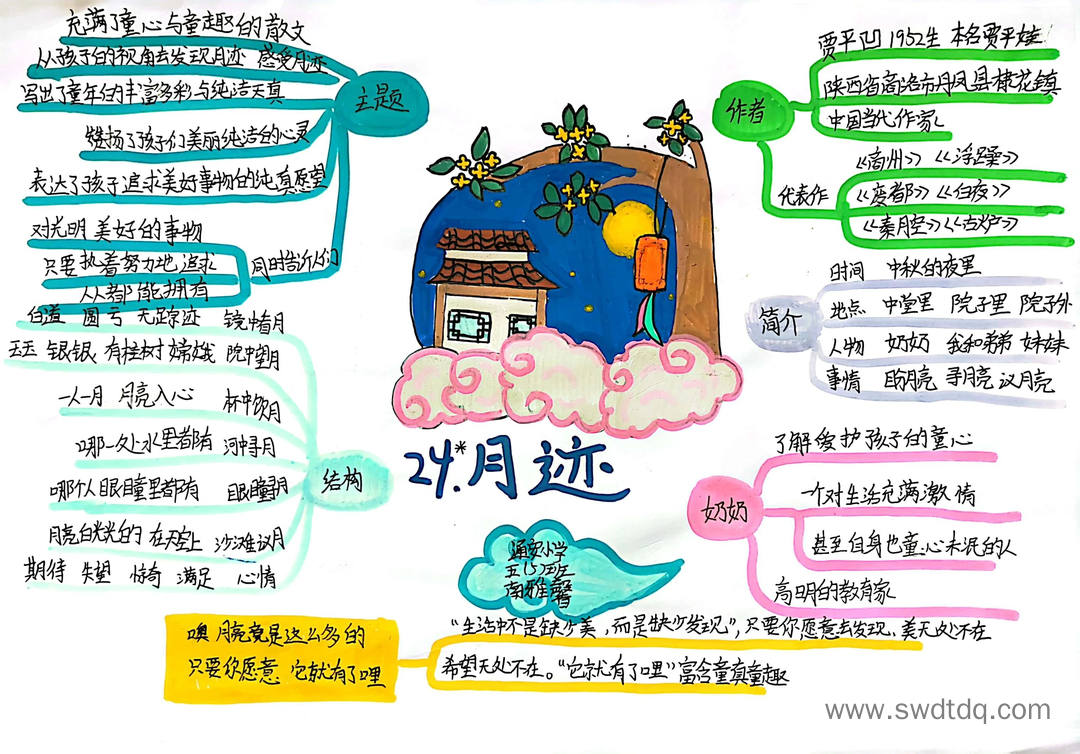 充满了童心与童趣的散文
从孩子的视角去发现月迹 感受月迹
写出了童年的丰富多彩与纯洁天真
赞扬了孩子们美丽纯洁的心灵
表达了孩子追求美好事物的纯真愿望
对光明 美好的事物
只要执着努力地追求
从都能拥有
同时告诉人们
主题
白道 圆亏 无踪迹 镜中看月
玉玉 银银 有桂树 嫦娥 院中望月
一人一月 月亮入心 杯中饮月
哪一处水里都有 河中寻月
哪个人眼睛里都有 眼睛寻月
月亮白光光的 在天空上 沙滩议月
期待 失望 惊奇 满足 心情
结构
24.*月迹
通安小学
五(5)班
作者
贾平凹 1952生 本名贾平娃
陕西省商洛市丹凤县棣花镇
中国当代作家
代表作
《商州》《浮躁》
《废都》《白夜》
《秦腔》《古炉》
简介
时间 中秋的夜里
地点 中堂里 院子里 院子外
人物 奶奶 我和弟弟 妹妹
事情 盼月亮 寻月亮 议月亮
奶奶
了解爱护孩子的童心
一个对生活充满激情
甚至自身也童心未泯的人
高明的教育家
噢 月亮竟是这么多的
只要你愿意 它就有了哩
“生活中不是缺少美,而是缺少发现”,只要你愿意去发现、美无处不在
希望无处不在。“它就有了哩”富含童真童趣
www.swdtdq.com